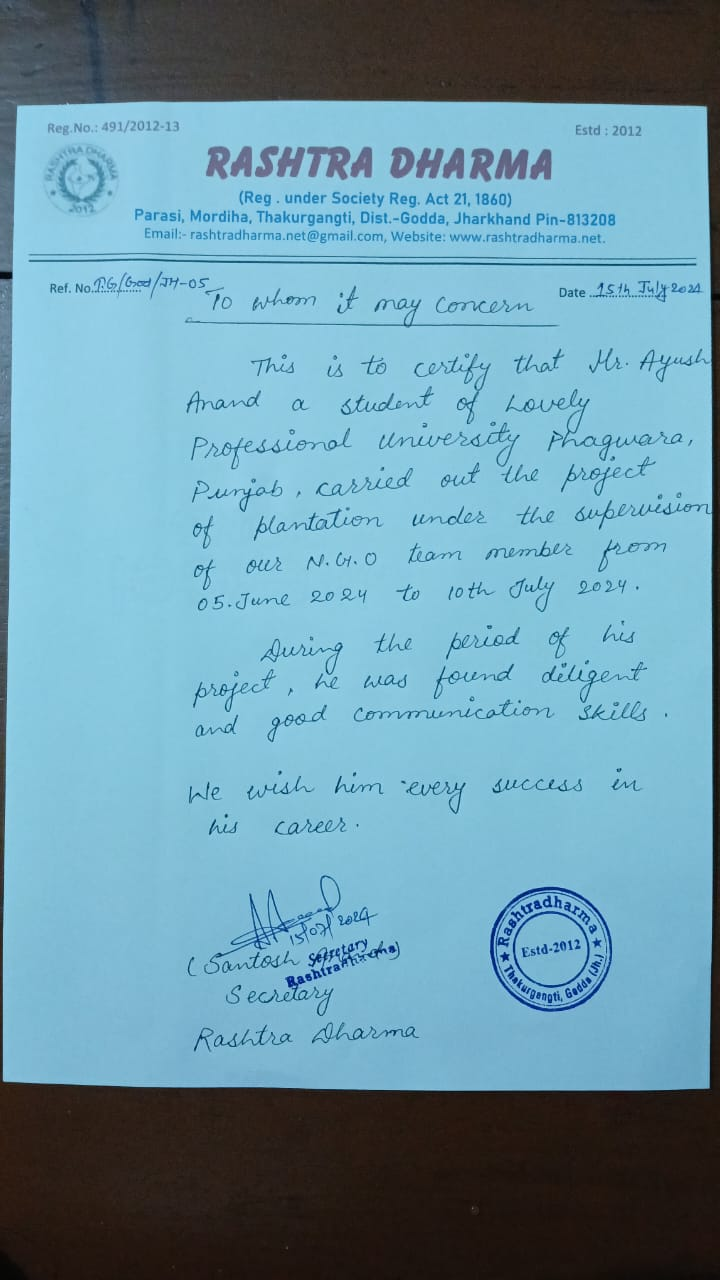 Reg.No.: 491/2012-13
Estd : 2012
RASHTRA DHARMA
2012
RASHTRA DHARMA
(Reg . under Society Reg. Act 21, 1860)
Parasi, Mordiha, Thakurgangti, Dist.-Godda, Jharkhand Pin-813208
Email:- rashtradharma.net@gmail.com, Website: www.rashtradharma.net.
Ref. No. /God/JH-05
Date 15th July 2024
To whom it may concern
This is to certify that Mr. Ayush
Anand a student of Lovely
Professional University Phagwara,
Punjab, carried out the project
of plantation under the supervision
of our N.G.O team member from
05.June 2024 to 10th July 2024.
During the period of his
project, he was found diligent
and good communication skills.
We wish him every success in
his career.
15/07/2024
(Santosh
Secretary
Rashtradharma
Secretary
Rashtra Dharma
Rashtradharma
Estd-2012
Thakurgangti, Godda (Jh.)